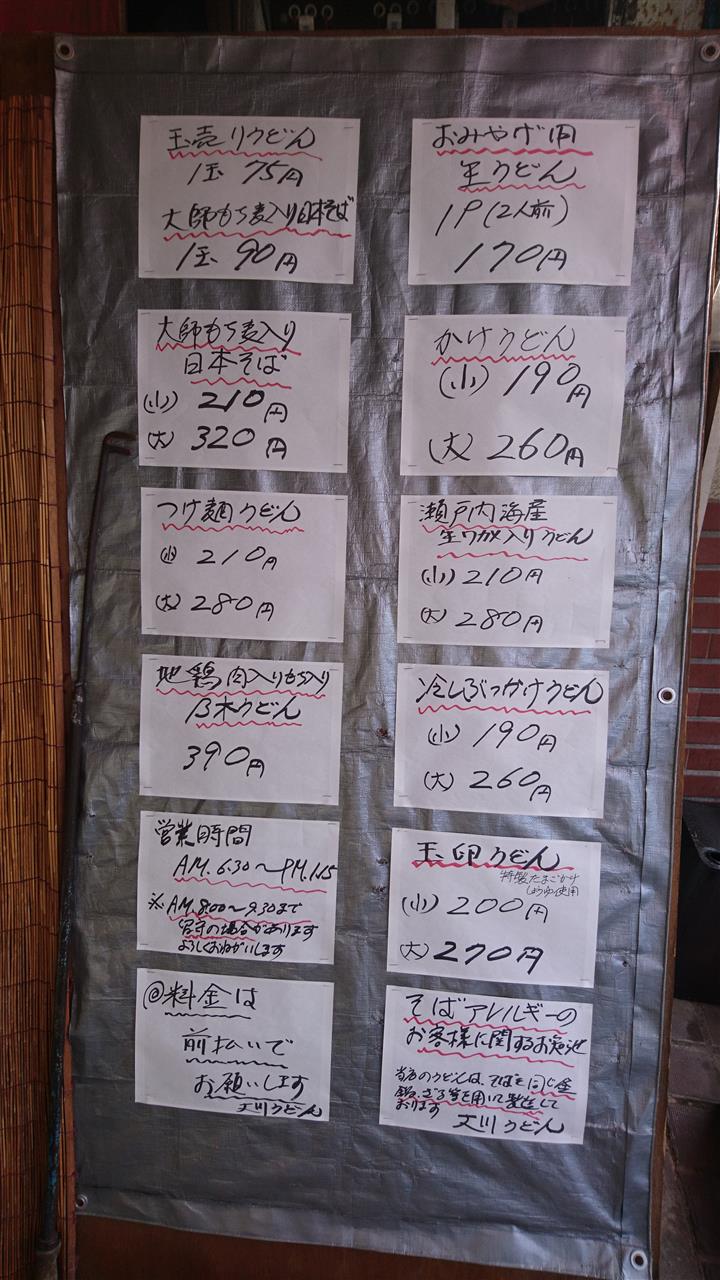 玉売りうどん
1玉 75円
大師もち麦入り日本そば
1玉 90円
おみやげ用
生うどん
1P(2人前)
170円
大師もち麦入り
日本そば
(小) 210円
(大) 320円
かけうどん
(小) 190円
(大) 260円
つけ麺うどん
(小) 210円
(大) 280円
瀬戸内海産
生ワカメ入りうどん
(小) 210円
(大) 280円
地鶏肉入りもち入り
うどん
390円
冷しぶっかけうどん
(小) 190円
(大) 260円
営業時間
AM.6.30〜PM.1.15
※AM.8:00〜9.30まで
留守の場合があります
よろしくおねがいします
玉卵うどん
特製たまごかけ
しょうゆ使用
(小) 200円
(大) 270円
@料金は
前払いで
お願いします
天川うどん
そばアレルギーの
お客様に関するお知せ
当店のうどんは、そばと同じ釜
鍋、ざる等を用いて製造して
おります
天川うどん